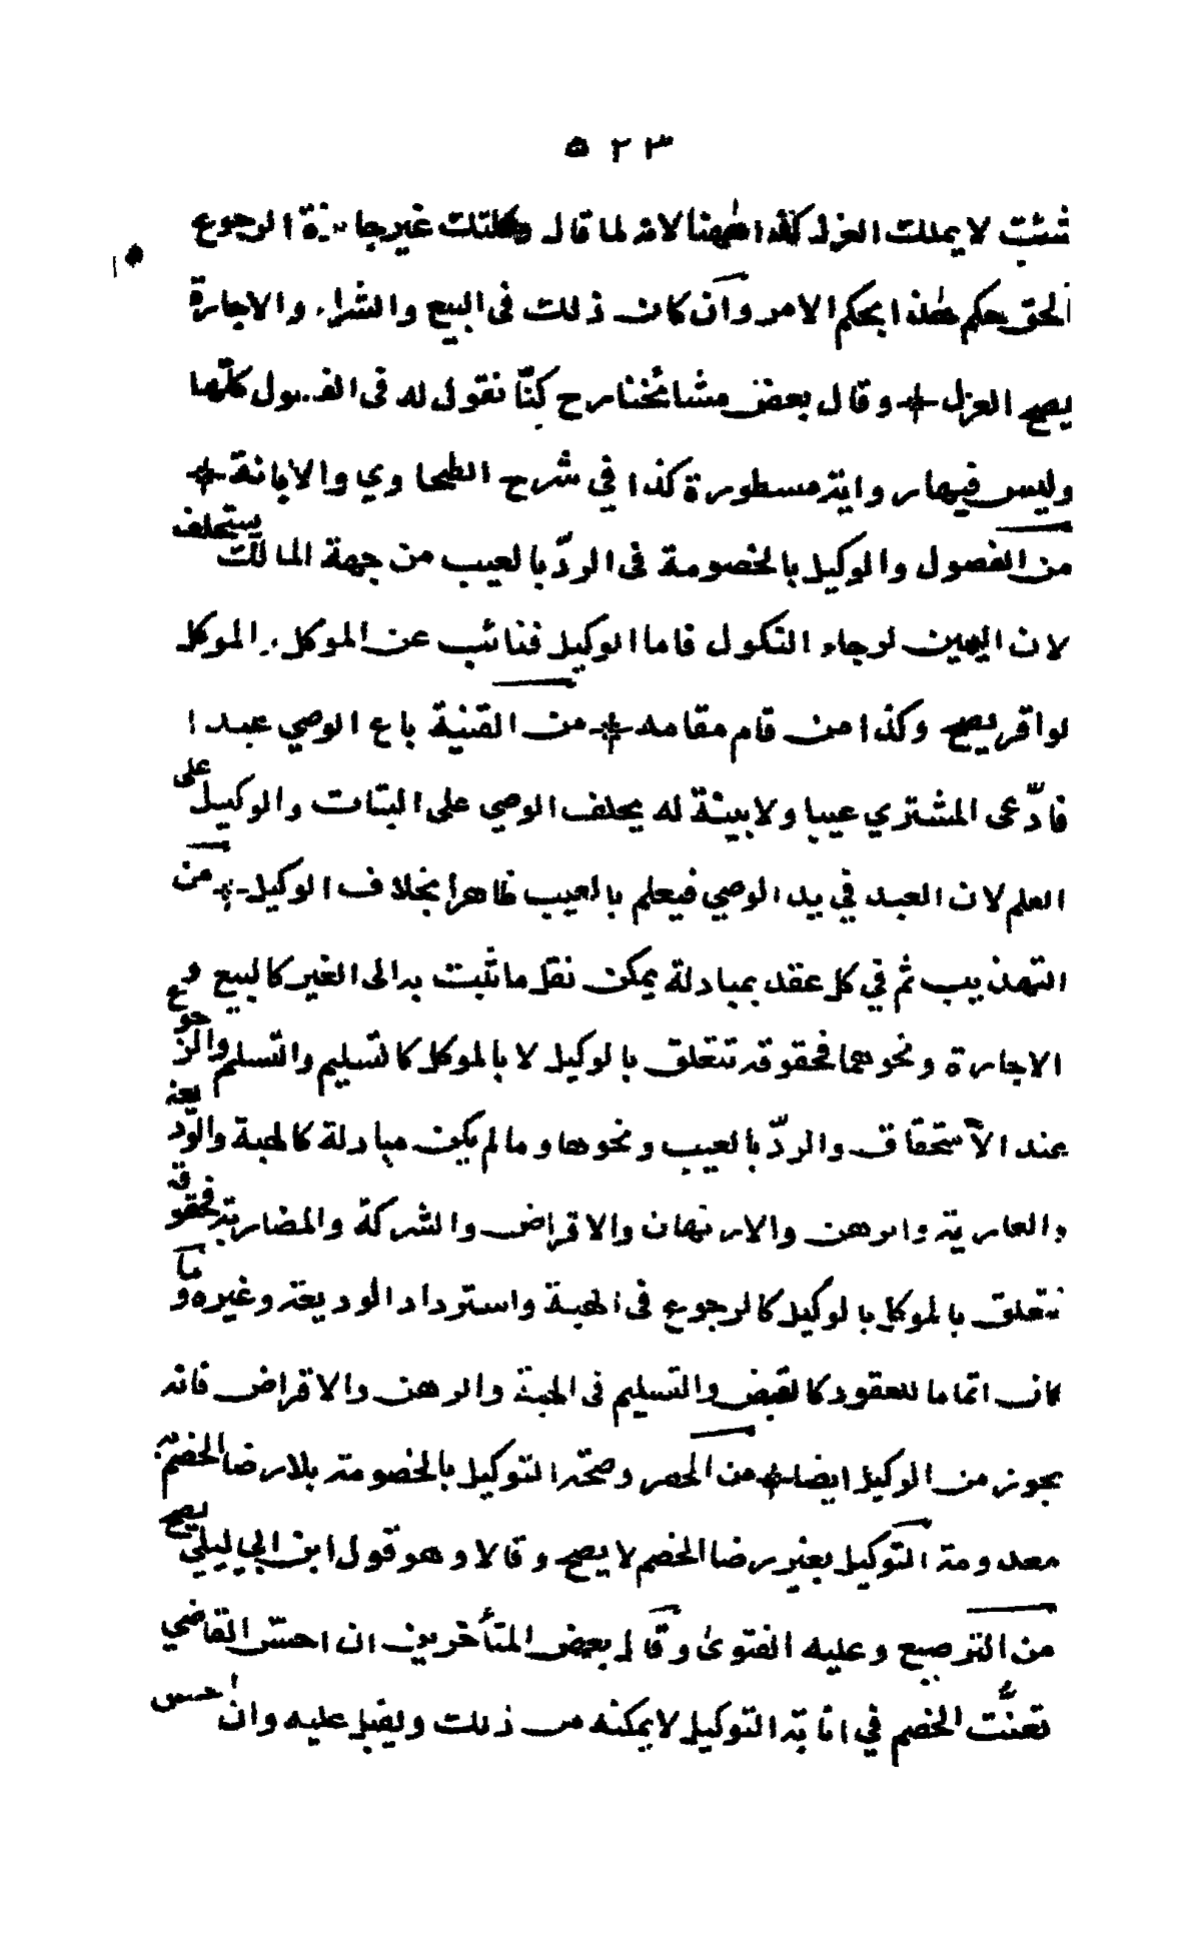 ٥٢٣
شئت لا يملك العزل كذا ههنا لانه لما قال وكلتك غير جائزة الرجوع
الحق حكم هذا بحكم الامر وان كان ذلك فى البيع والشراء والاجارة
يصح العزل وقال بعض مشائخنا رح كنّا نقول له فى الفصول كلّها
وليس فيها رواية مسطورة كذا في شرح الطحاوي والابانة
من الفصول والوكيل بالخصومة فى الردّ بالعيب من جهة المالك يستحلف
لان اليمين لرجاء النكول فاما الوكيل فنائب عن الموكل والموكل
لو اقر يصح وكذا من قام مقامه من القنية باع الوصي عبدا
فادّعى المشتري عيبا ولا بينة له يحلف الوصي على البتات والوكيل على
العلم لان العبد في يد الوصي فيعلم بالعيب ظاهرا بخلاف الوكيل من
التهذيب ثم في كل عقد بمبادلة يمكن نقل ما ثبت به الى الغير كالبيع و
الاجارة ونحوهما فحقوقه تتعلق بالوكيل لا بالموكل كالتسليم والتسلم والرجوع
عند الاستحقاق والردّ بالعيب ونحوها وما لم يكن مبادلة كالهبة والوديعة
والعارية والرهن والارتهان والاقراض والشركة والمضاربة فحقوقه
تتعلق بالموكل بالوكيل كالرجوع فى الهبة واسترداد الوديعة وغيره وما
كان اتماما للعقود كالقبض والتسليم فى الهبة والرهن والاقراض فانه
يجوز من الوكيل ايضا من الحصر وصحّة التوكيل بالخصومة بلا رضا الخصم
معدومة التوكيل بغير رضا الخصم لا يصح وقالا وهو قول ابن ابي ليلى يصح
من الترصيع وعليه الفتوى وقال بعض المتأخرين ان احسّ القاضي
تعنّت الخصم في اثابة التوكيل لا يمكنه من ذلك ويقبل عليه وان احس